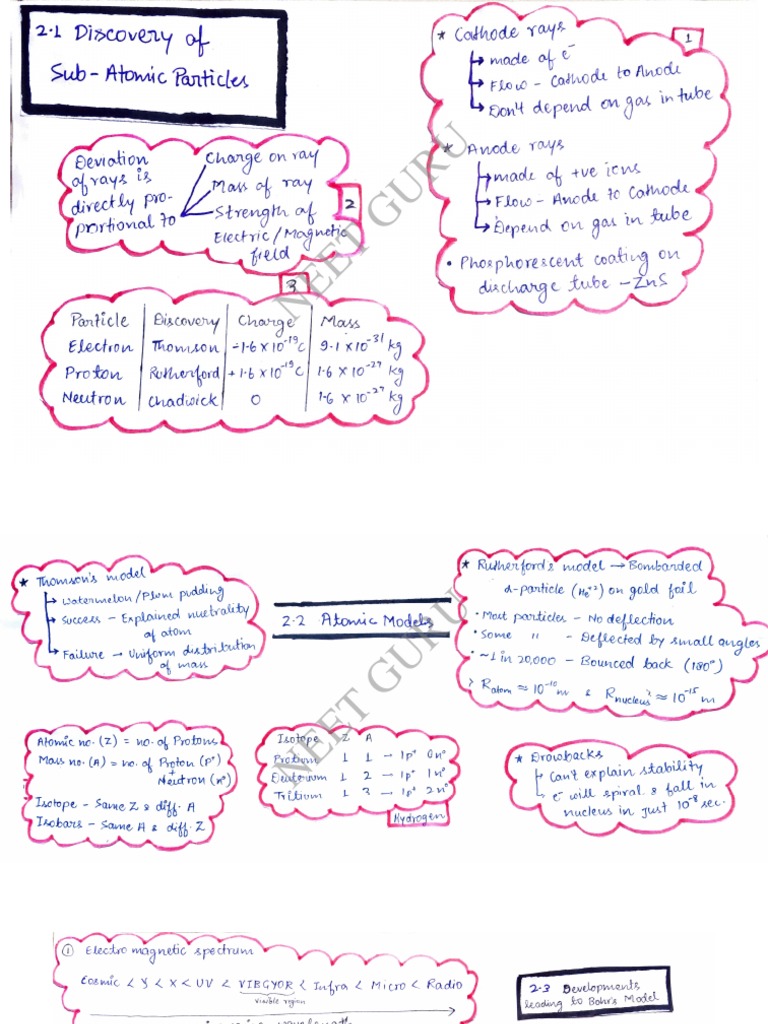 2.1 Discovery of
Sub-Atomic Particles
1
* Cathode rays
made of e⁻
Flow - Cathode to Anode
Don't depend on gas in tube
* Anode rays
made of +ve ions
Flow - Anode to Cathode
Depend on gas in tube
• Phosphorescent coating on
discharge tube - ZnS
2
Deviation
of rays is
directly pro-
portional to
Charge on ray
Mass of ray
Strength of
Electric/Magnetic
field
3
Particle Discovery Charge Mass
Electron Thomson -1.6 x 10⁻¹⁹C 9.1 x 10⁻³¹ kg
Proton Rutherford +1.6 x 10⁻¹⁹C 1.6 x 10⁻²⁷ kg
Neutron Chadwick 0 1.6 x 10⁻²⁷ kg
NEET GURU
* Thomson's model
Watermelon/Plum pudding
Success - Explained nuetrality
of atom
Failure → Uniform distribution
of mass
2.2 Atomic Models
* Rutherford's model → Bombarded
α-particle (He⁺²) on gold foil
• Most particles - No deflection
• Some " - Deflected by small angles
• ~1 in 20,000 - Bounced back (180°)
> R atom ≈ 10⁻¹⁰ m & R nucleus ≈ 10⁻¹⁵ m
Atomic no. (Z) = no. of Protons
Mass no. (A) = no. of Proton (p⁺)
+
Neutron (n°)
Isotope - Same Z & diff. A
Isobars - Same A & diff. Z
Isotope Z A
Protium 1 1 → 1p⁺ 0n°
Deuterium 1 2 → 1p⁺ 1n°
Tritium 1 3 → 1p⁺ 2n°
Hydrogen
* Drawbacks
Can't explain stability
e⁻ will spiral & fall in
nucleus in just 10⁻⁸ sec.
NEET GURU
① Electro magnetic spectrum
Cosmic < γ < X < UV < VIBGYOR < Infra < Micro < Radio
visible region
2.3 Developments
leading to Bohr's Model